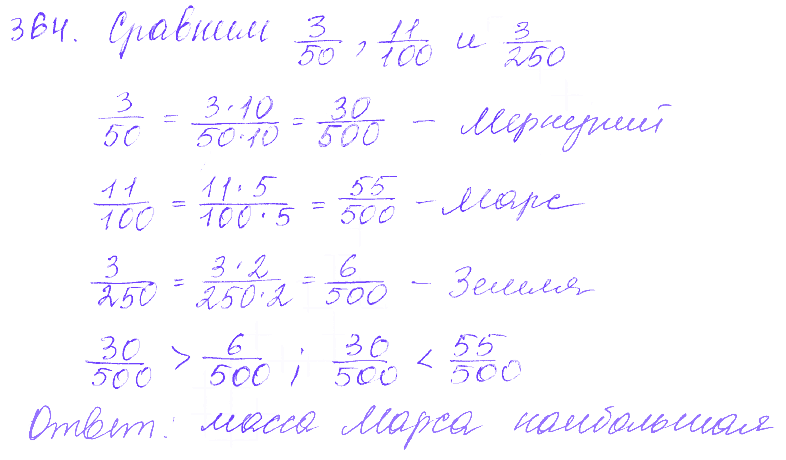 364. Сравним 3/50, 11/100 и 3/250
3/50 = 3·10/50·10 = 30/500 – Меркурий
11/100 = 11·5/100·5 = 55/500 – Марс
3/250 = 3·2/250·2 = 6/500 – Земля
30/500 > 6/500 ; 30/500 < 55/500
Ответ: масса Марса наибольшая